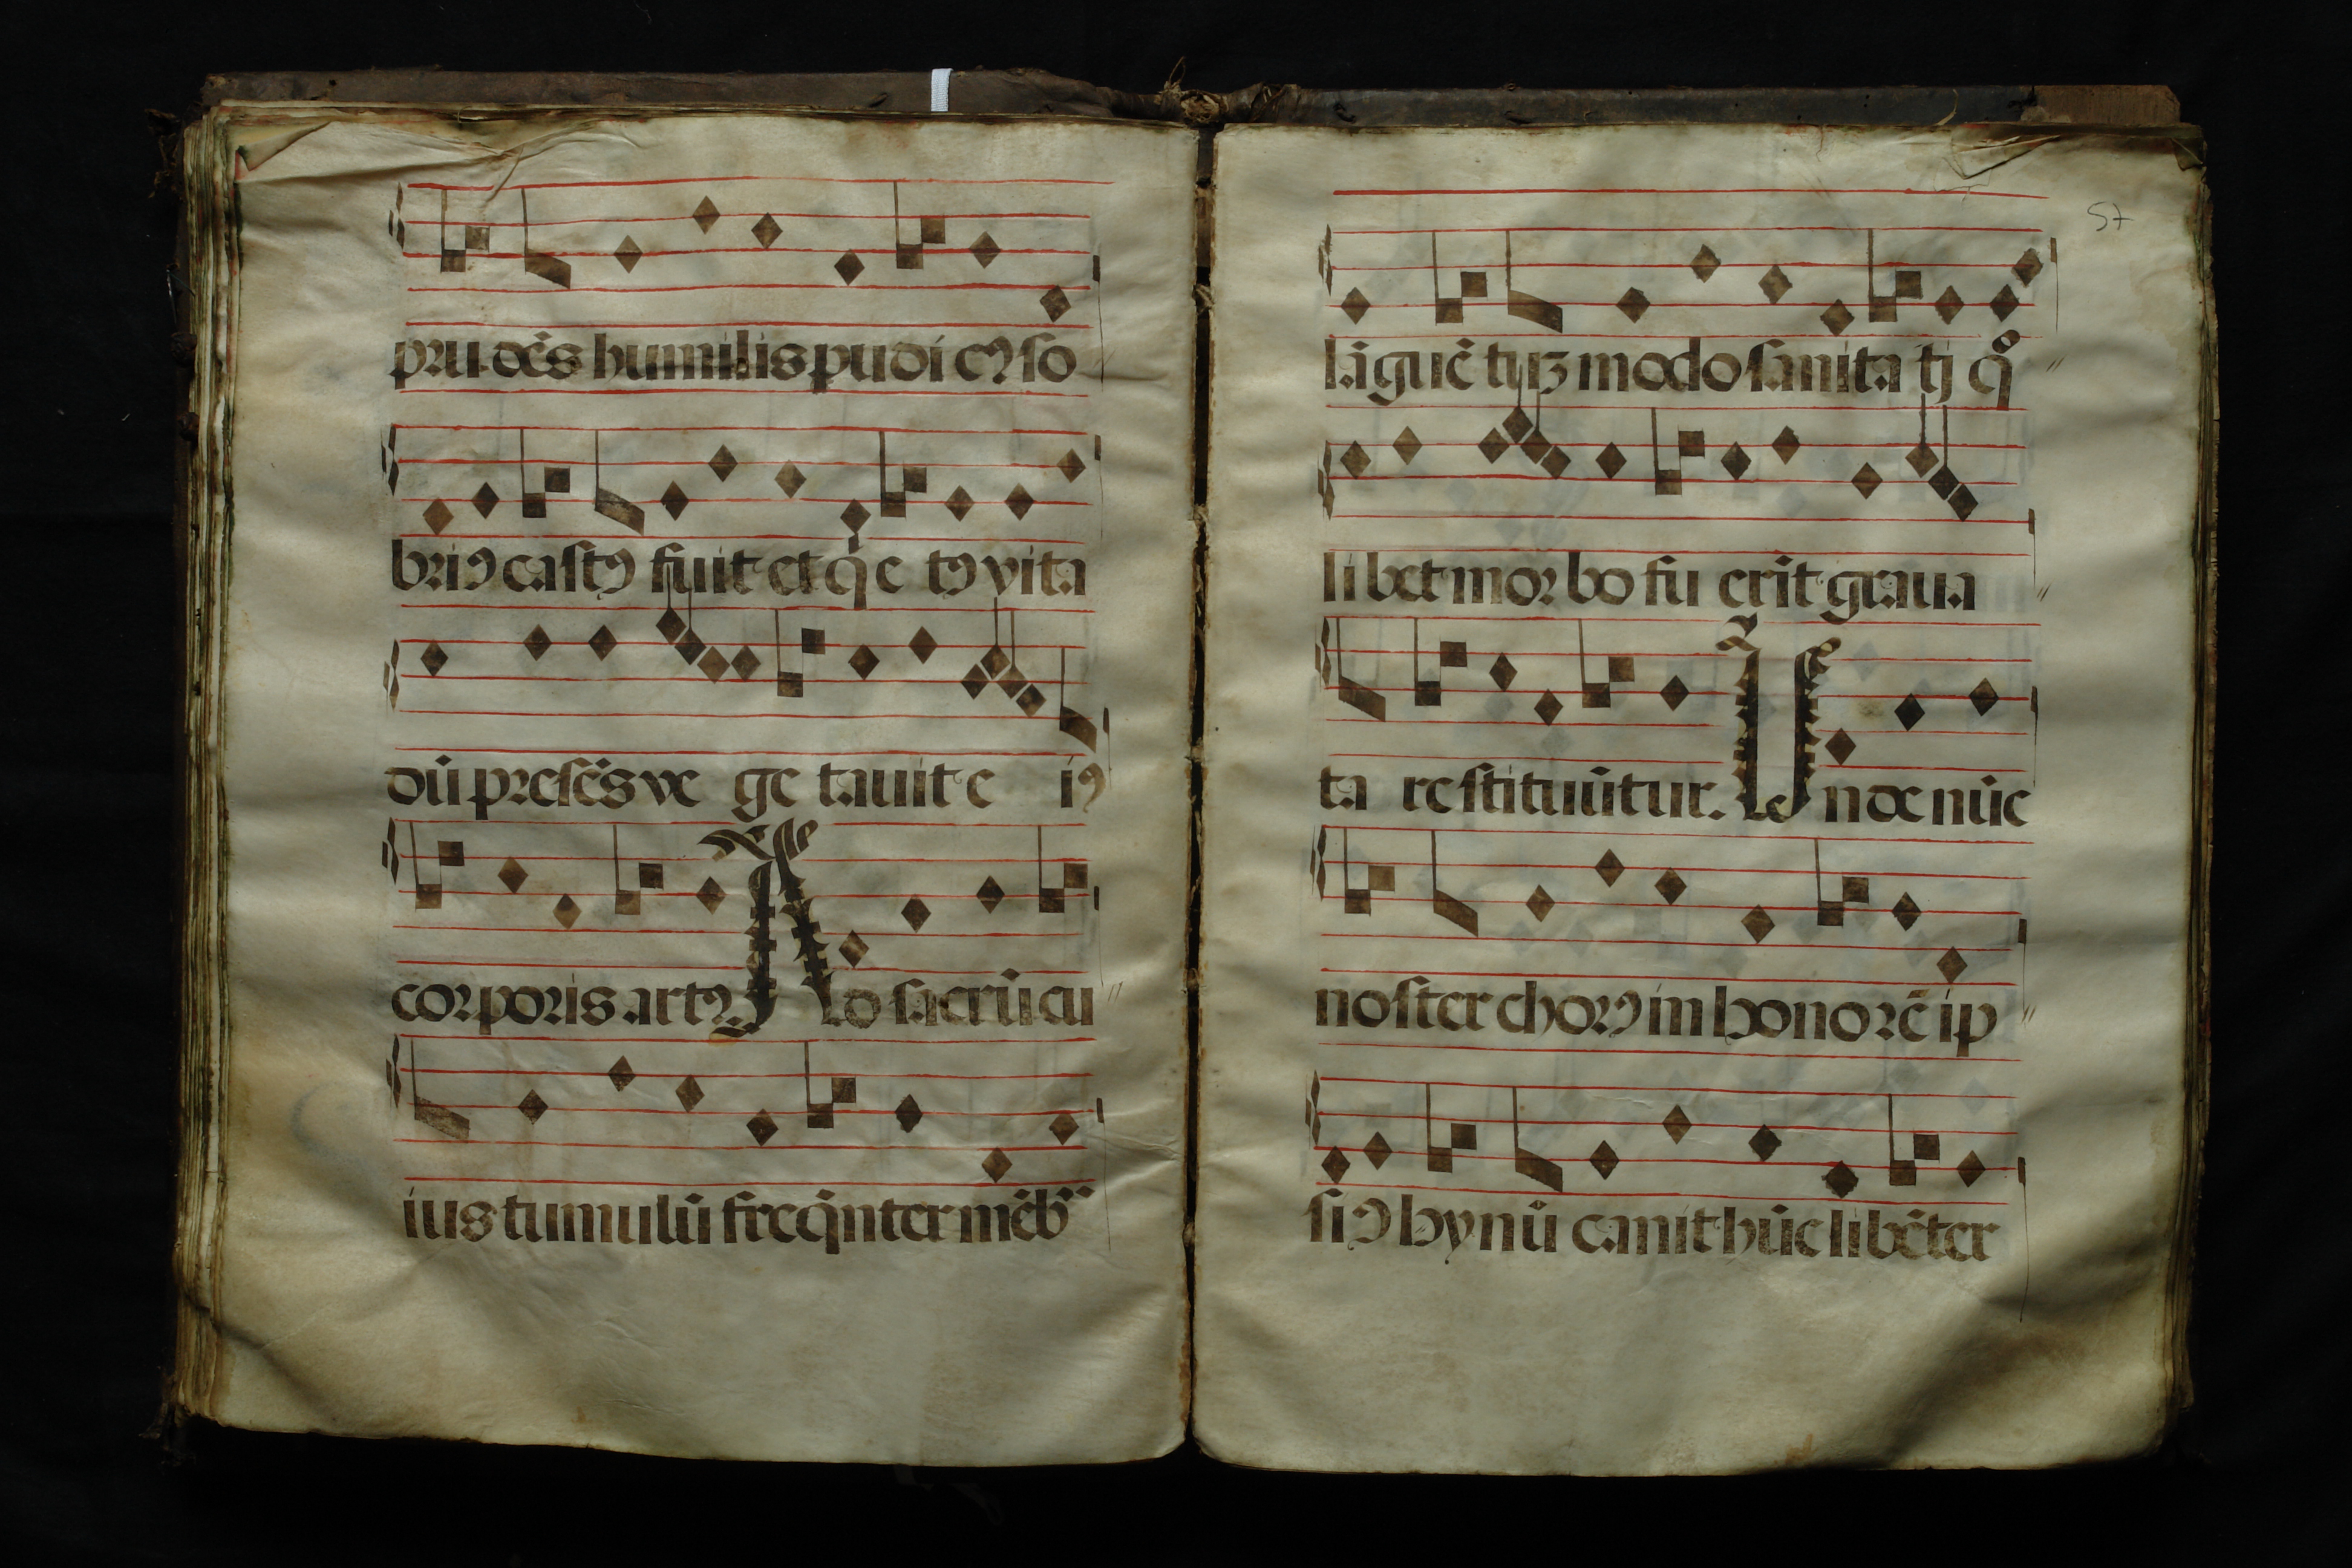 pru dēs humilis pudi cꝰ so
briꝰ castꝰ fuit et q̄e tꝰ vita
dū presēs ve ge tauit e iꝰ
corporis artꝰ. A d sacrū cu
ius tumulū freq̄nter mēb
57
lāguē tiuꝫ modo sanita tj qͦ
li bet mor bo fu erīt graua
ta re stituūtur. U n de nūc
noster chorꝰ in honorē ip
siꝰ hynū canit hūc libēter